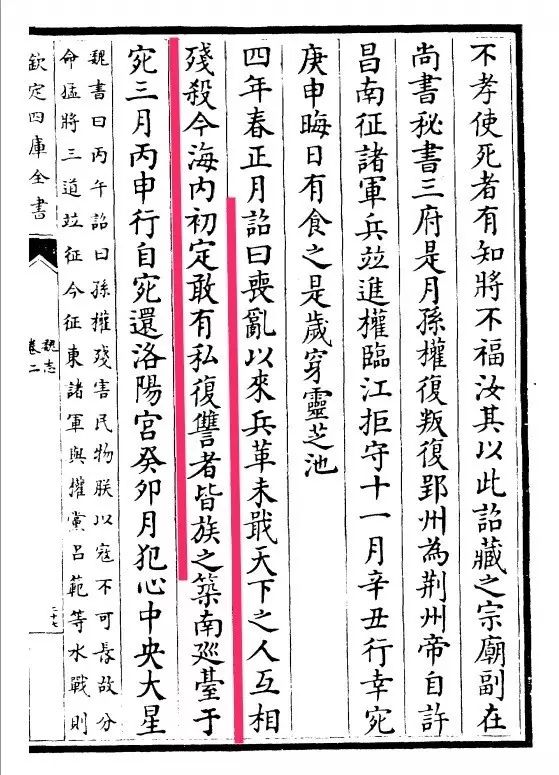 不孝使死者有知將不福汝其以此詔藏之宗廟副在
尚書秘書三府是月孫權復叛復郢州為荆州帝自許
昌南征諸軍兵並進權臨江拒守十一月辛丑行幸宛
庚申晦日有食之是歲穿靈芝池
四年春正月詔曰喪亂以來兵革未戢天下之人互相
殘殺今海内初定敢有私復讐者皆族之築南廵臺于
宛三月丙申行自宛還洛陽宫癸卯月犯心中央大星
魏書曰丙午詔曰孫權殘害民物朕以寇不可長故分
命猛將三道並征今征東諸軍與權黨吕範等水戰則
欽定四庫全書
魏志
卷二
二十七